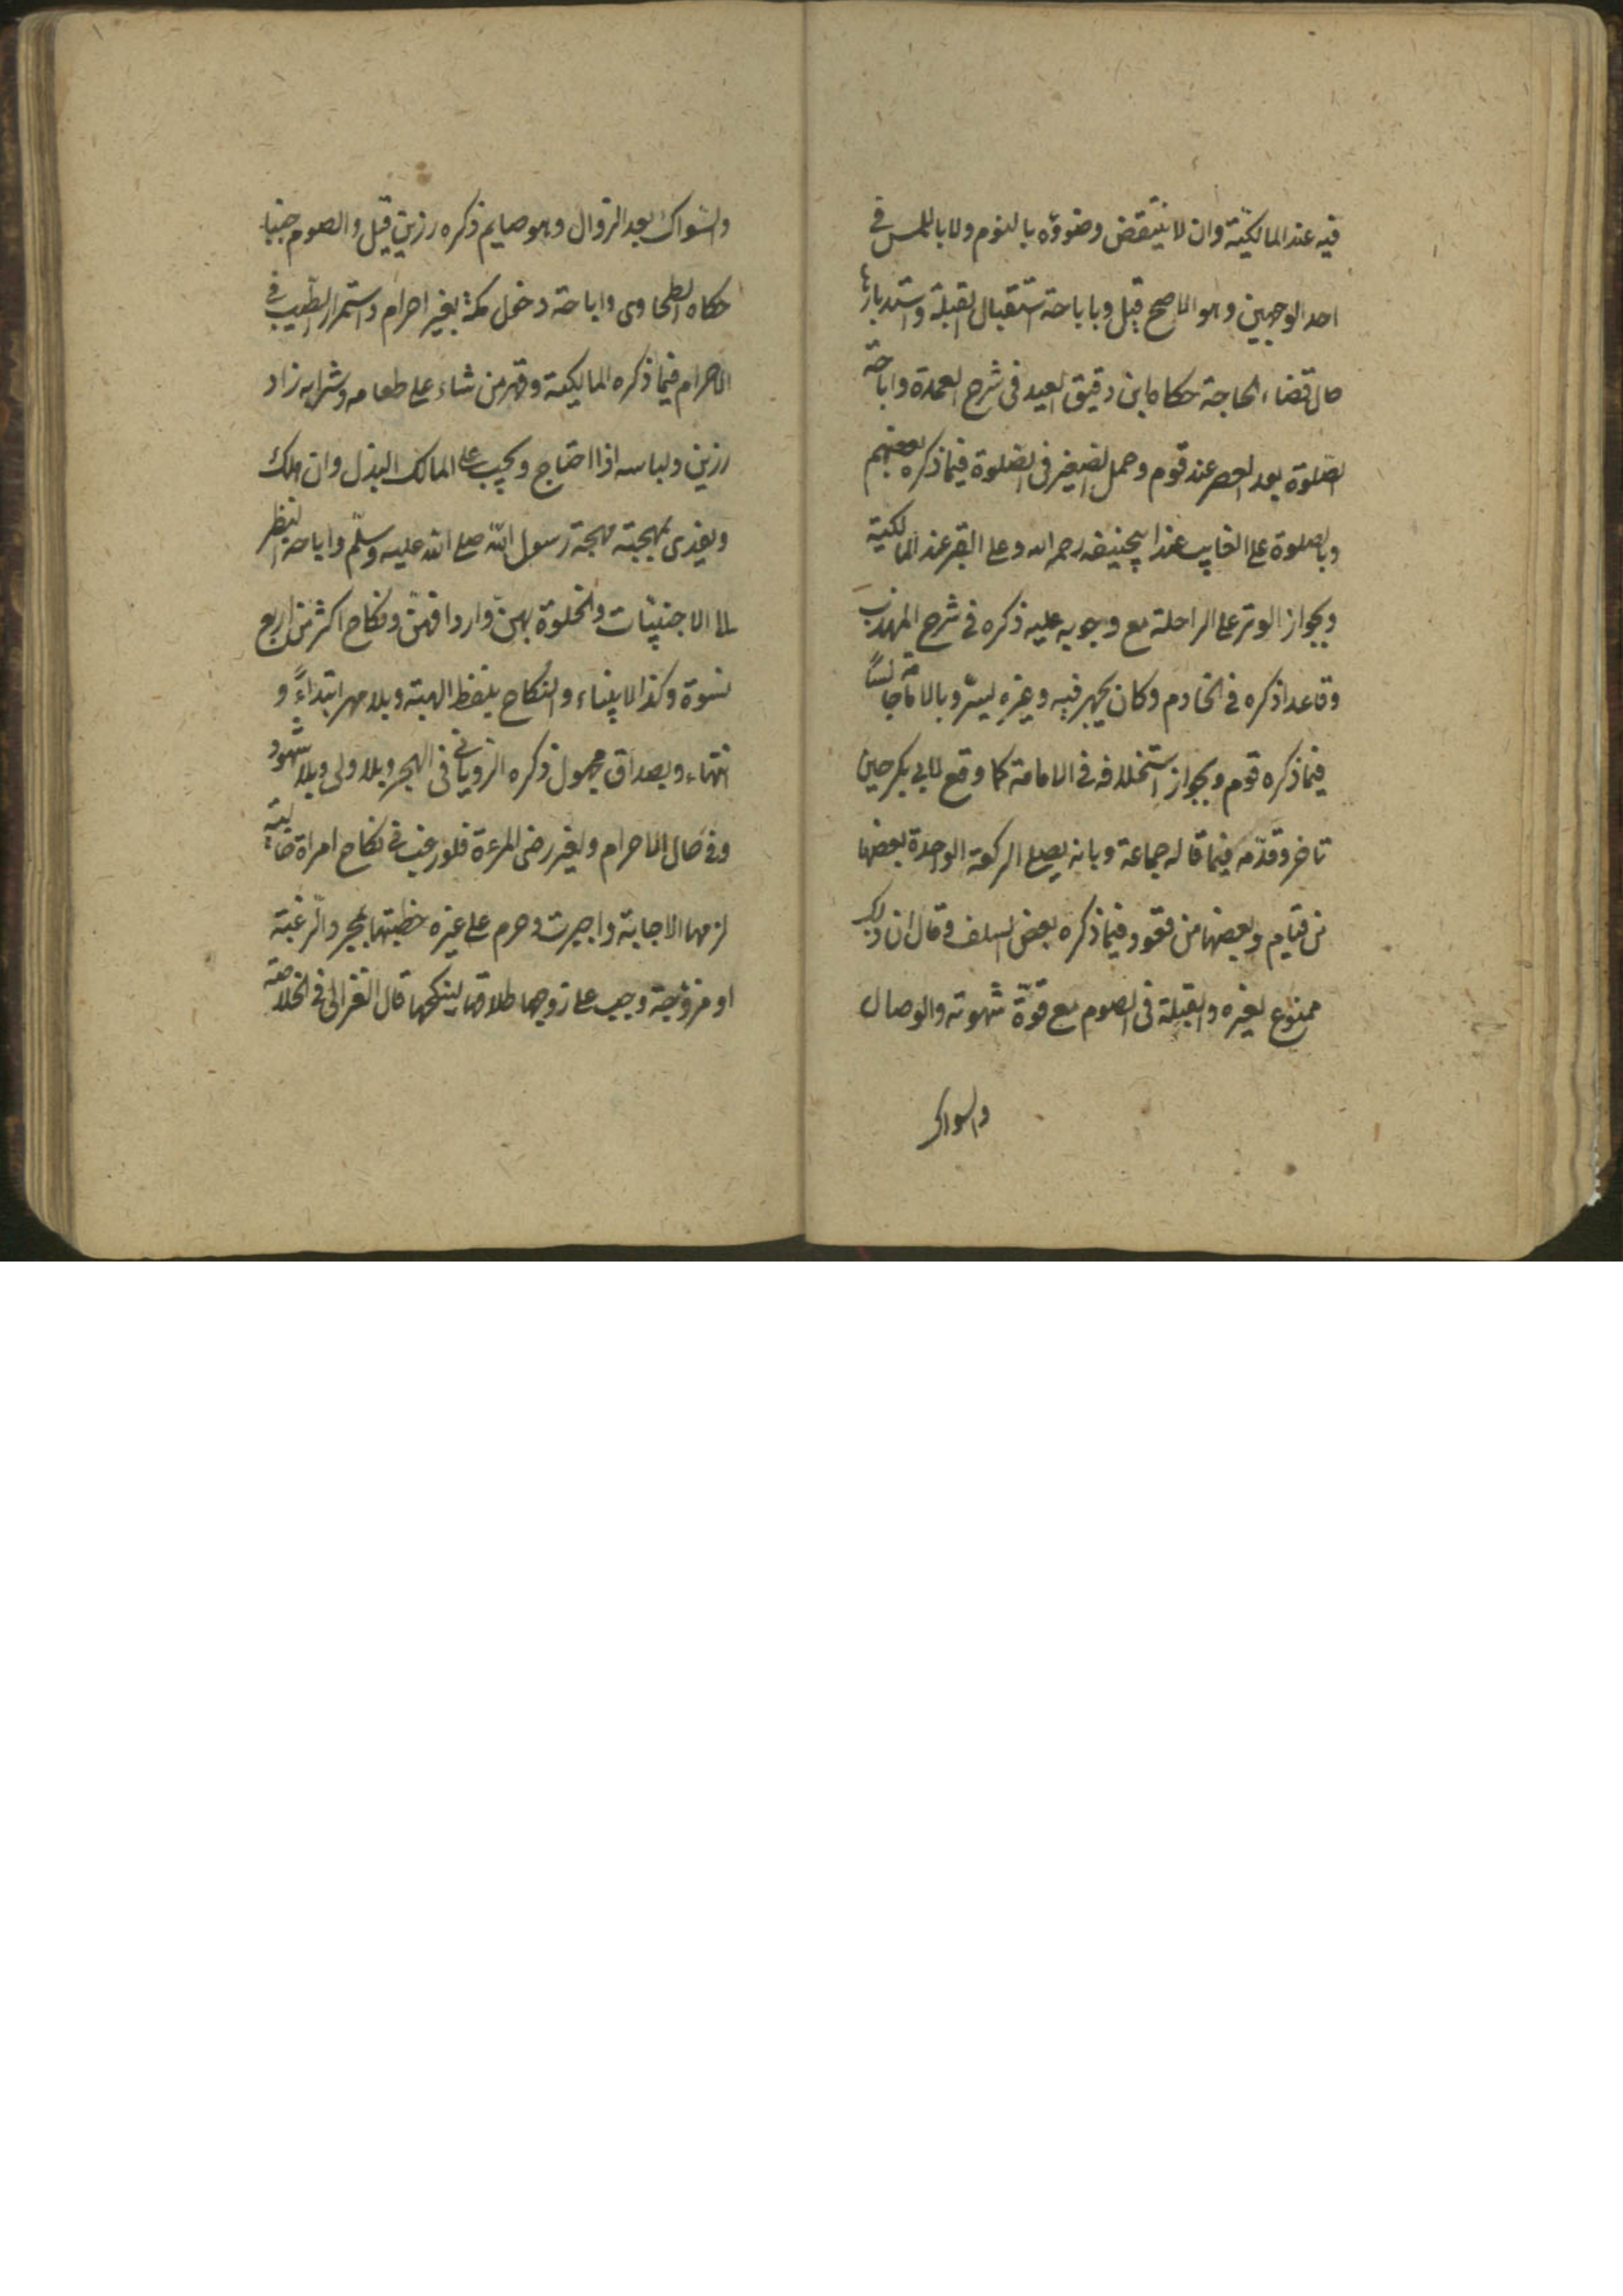 فيه عند المالكيّة وان لا ينتقض وضوؤه بالنوم ولا باللمس فى
احد الوجهين وهو الاصح قيل وباباحة استقبال القبلة واستدبارها
حال قضاء الحاجة حكاه ابن دقيق العيد فى شرح العمدة واباحة
الصّلوة بعد العصر عند قوم وحمل الصّغير فى الصّلوة فيما ذكره بعضهم
وبالصلوة على الغايب عند ابيحنيفه رحمه الله وعلى القبر عند المالكية
وبجواز الوتر على الراحلة مع وجوبه عليه ذكره فى شرح المهذب
وقاعدا ذكره فى الخادم وكان يجهر فيه وغيره يسرّ وبالامامة جالسًا
فيما ذكره قوم وبجواز استخلافه فى الامامة كما وقع لابى بكر حين
تاخر وقدّمه فيما قاله جماعة وبانه يصلى الركعة الواحدة بعضها
من قيام وبعضها من قعود فيما ذكره بعض السلف وقال ان ذلك
ممنوع لغيره والقبلة فى الصوم مع قوّة شهوته والوصال
والسواك
والسّواك بعد الزوال وهو صايم ذكره رزين قيل والصوم جنبا
حكاه الطحاوى واباحة دخل مكة بغير احرام واستمرار الطّيب فى
الاحرام فيما ذكره المالكية وقهر من شاء على طعامه وشرابه زاد
رزين ولباسه اذا احتاج ويجب على المالك البذل وان هلك
ويفدى بمهجته مهجة رسول اللّه صلى الله عليه وسلّم واباحة النظر
الى الاجنبيّات والخلوة بهنّ وارداقهنّ ونكاح اكثر من اربع
نسوة وكذا الانبياء والنكاح بلفظ الهبة وبلا مهر ابتداءً و
انتهاء وبصداق مجهول ذكره الرويانى فى البحر وبلا ولى وبلا شهود
وفى حال الاحرام وبغير رضى المرءة فلو رغب فى نكاح امراة خالية
لزمها الاجابة واجبرت وحرم على غيره خطبتها بمجرد الرّغبة
او مزوّجة وجب على زوجها طلاقها لينكحها قال الغزالى فى الخلاصة